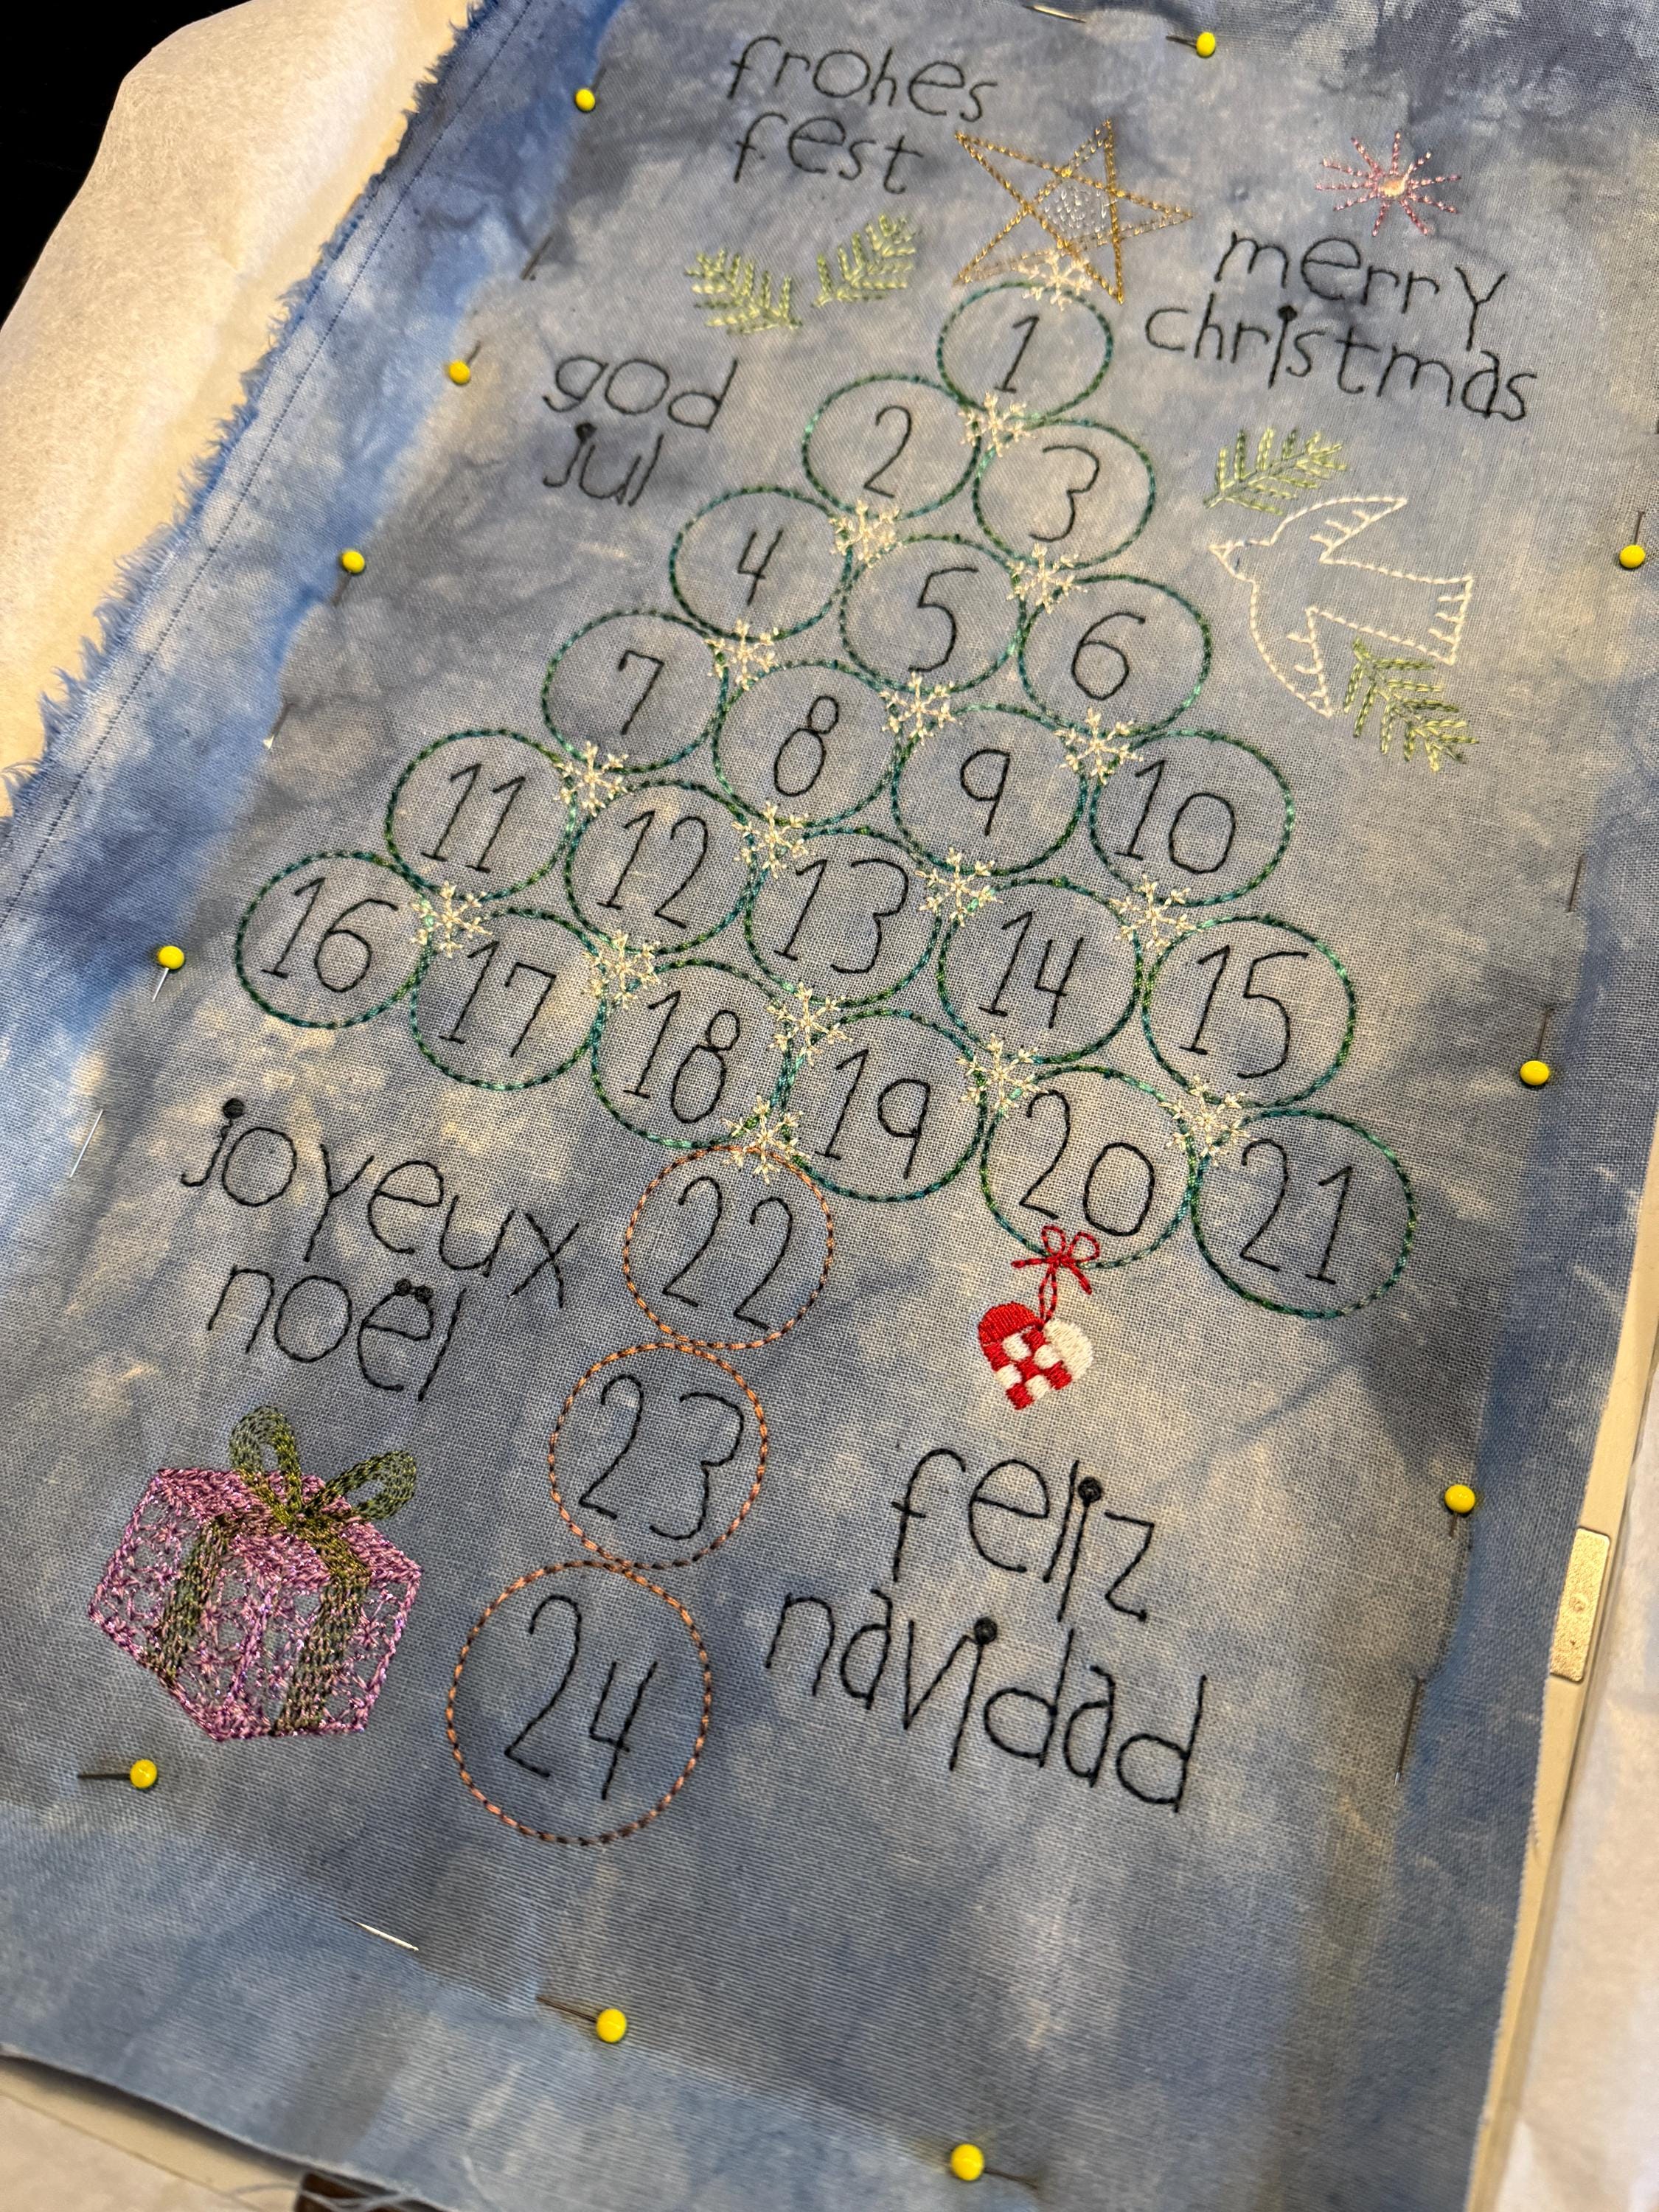 frohes
fest
merry
christmas
god
jul
1
2 3
4 5 6
7 8 9 10
11 12 13 14 15
16 17 18 19 20 21
joyeux
noël
22
23
24
feliz
navidad